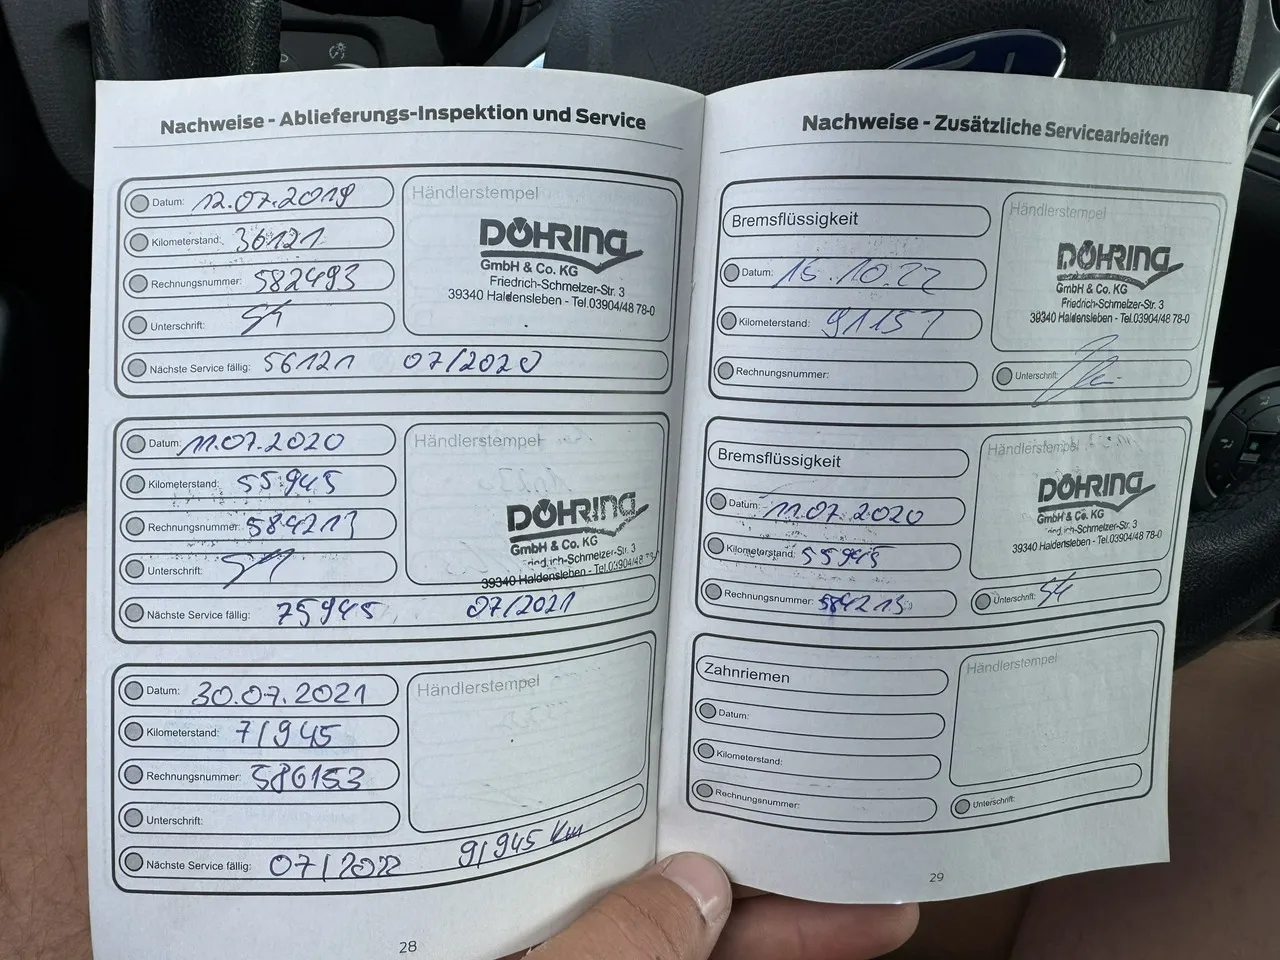 Nachweise - Ablieferungs-Inspektion und Service
Datum: 12.07.2019
Kilometerstand: 36121
Rechnungsnummer: 582493
Unterschrift:
Nächste Service fällig: 56121 07/2020
Händlerstempel
DÖHRING
GmbH & Co. KG
Friedrich-Schmelzer-Str. 3
39340 Haldensleben - Tel.03904/48 78-0
Datum: 11.07.2020
Kilometerstand: 55945
Rechnungsnummer: 584213
Unterschrift:
Nächste Service fällig: 75945 07/2021
Händlerstempel
DÖHRING
GmbH & Co. KG
Friedrich-Schmelzer-Str. 3
39340 Haldensleben - Tel.03904/48 78-
Datum: 30.07.2021
Kilometerstand: 71945
Rechnungsnummer: 586153
Unterschrift:
Nächste Service fällig: 07/2022 91945 Km
Händlerstempel
28
Nachweise - Zusätzliche Servicearbeiten
Bremsflüssigkeit
Datum: 15.10.22
Kilometerstand: 91151
Rechnungsnummer:
Händlerstempel
DÖHRING
GmbH & Co. KG
Friedrich-Schmelzer-Str. 3
39340 Haldensleben - Tel.03904/48 78-0
Unterschrift:
Bremsflüssigkeit
Datum: 11.07.2020
Kilometerstand: 55945
Rechnungsnummer: 584213
Händlerstempel
DÖHRING
GmbH & Co. KG
Friedrich-Schmelzer-Str. 3
39340 Haldensleben - Tel.03904/48 78-0
Unterschrift:
Zahnriemen
Datum:
Kilometerstand:
Rechnungsnummer:
Händlerstempel
Unterschrift:
29